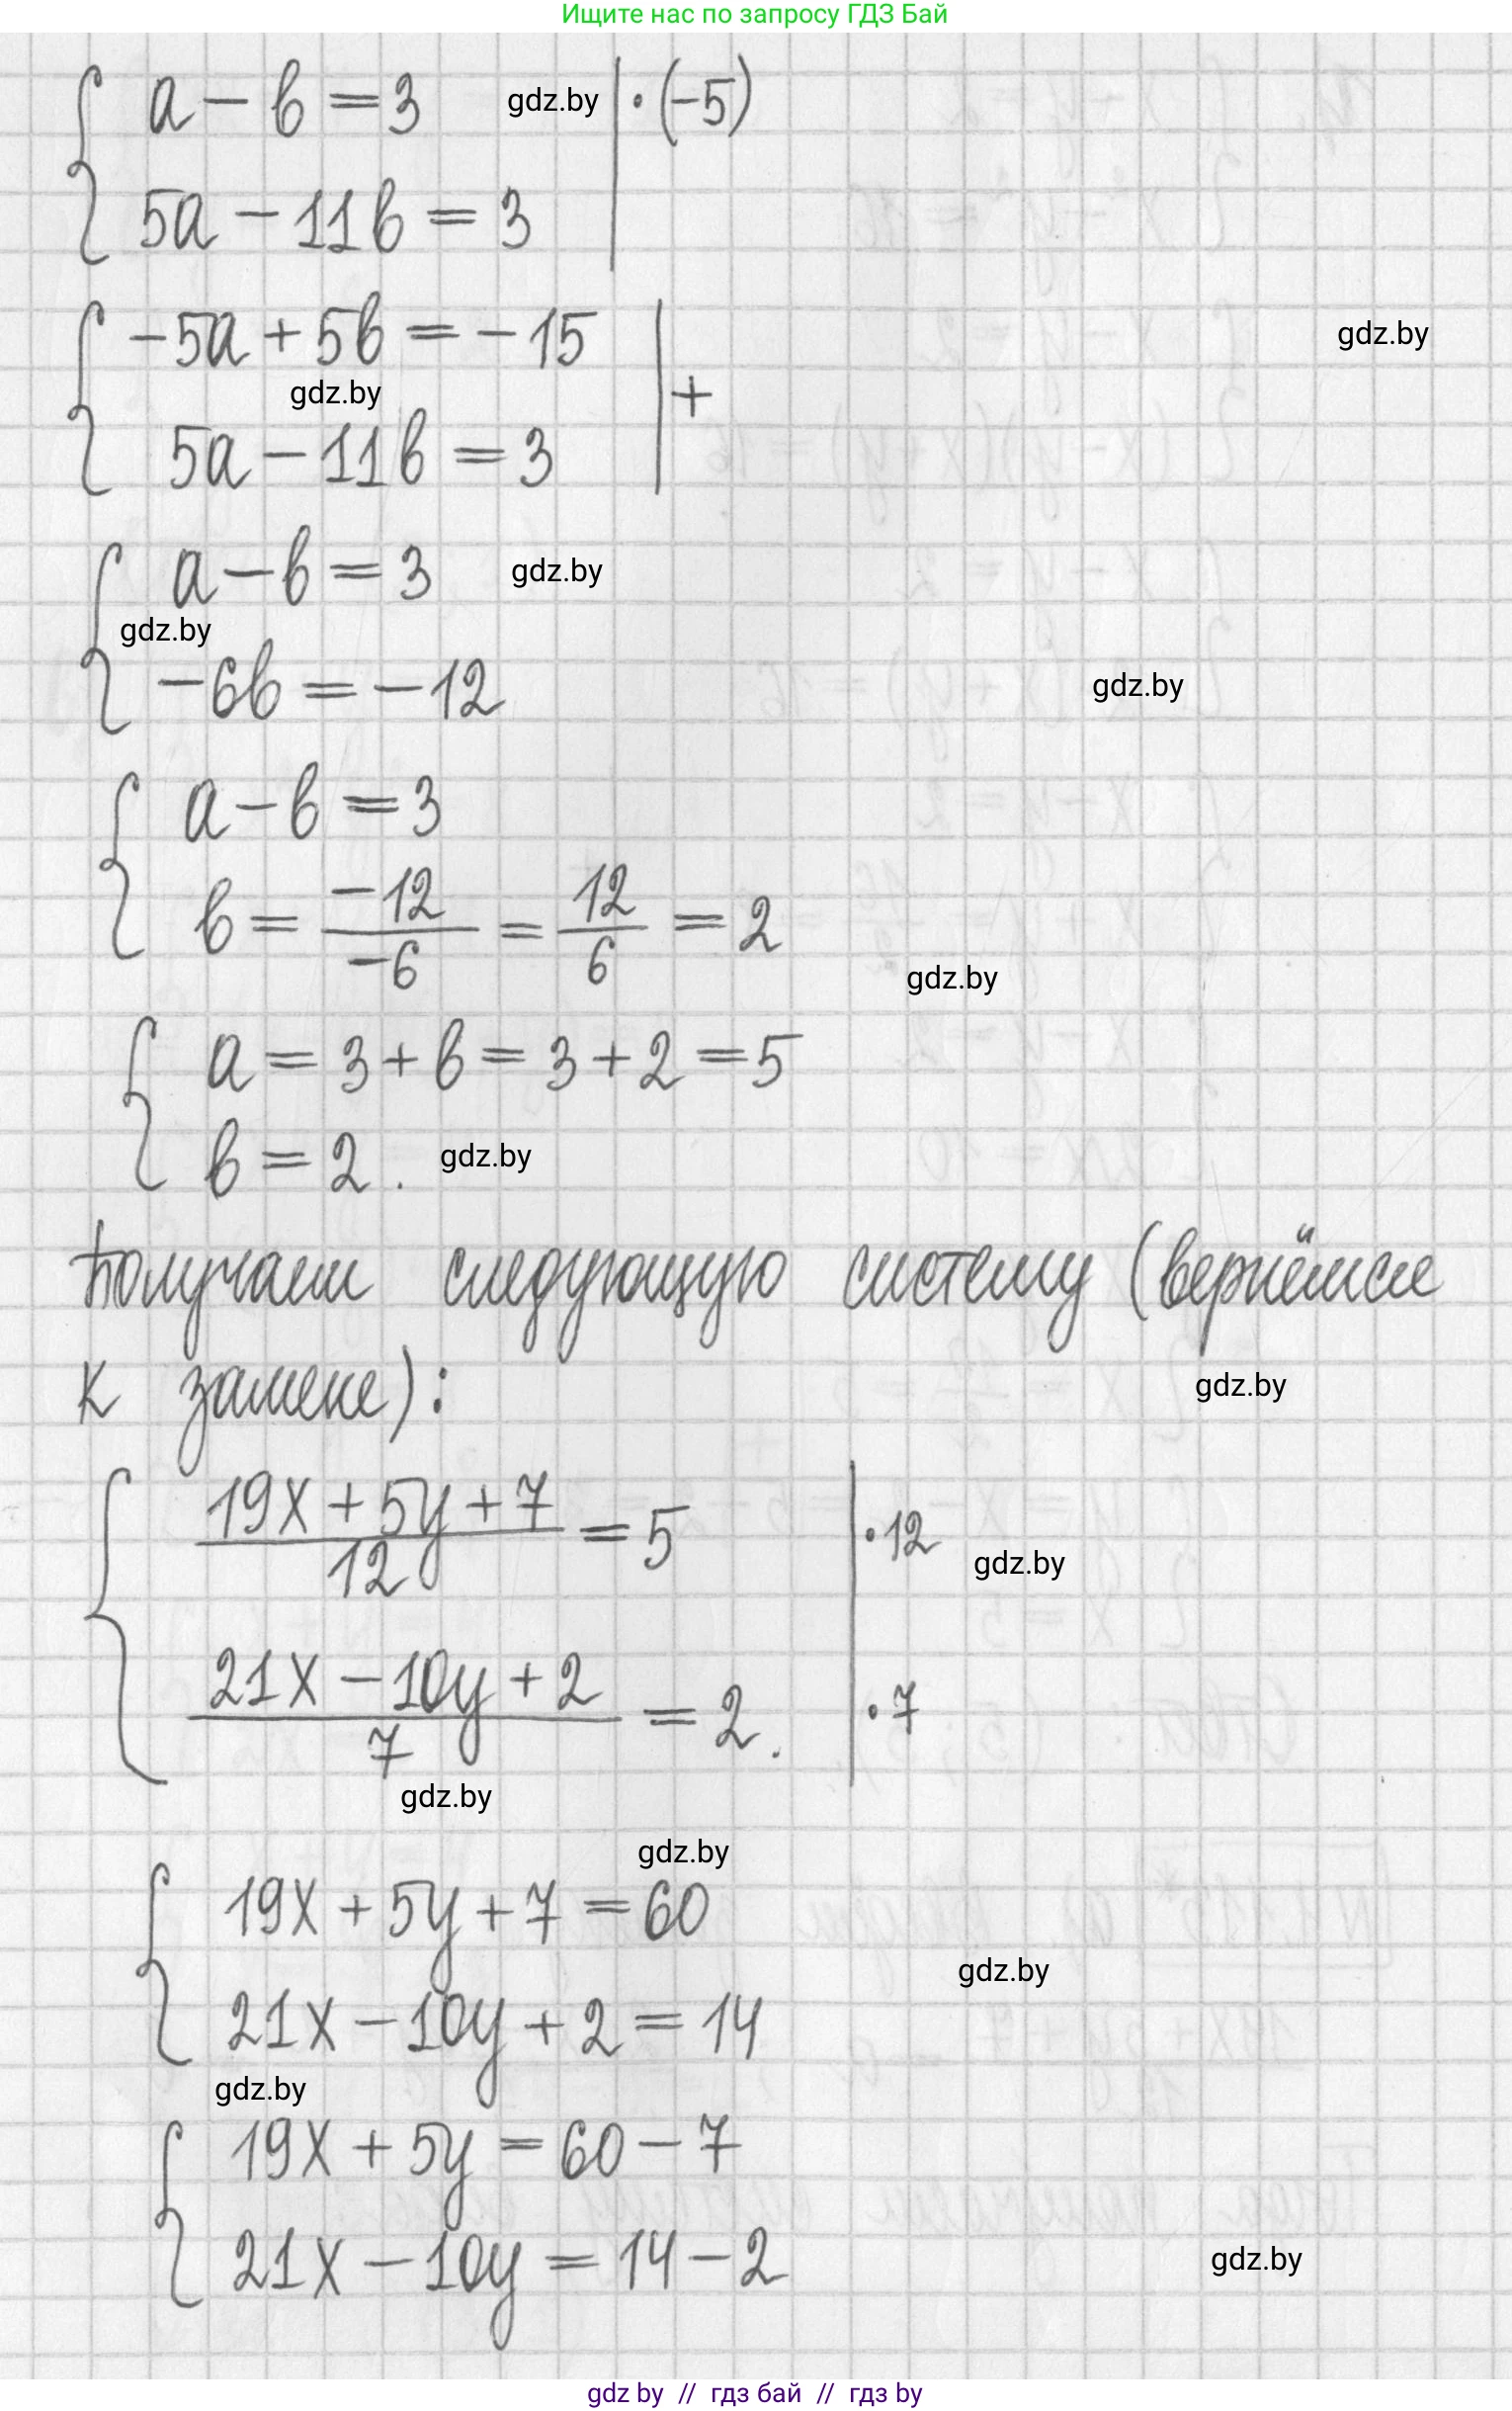 Ищите нас по запросу ГДЗ Бай
a - b = 3 gdz.by | · (-5)
5a - 11b = 3
-5a + 5b = -15 gdz.by
gdz.by | +
5a - 11b = 3
a - b = 3 gdz.by
gdz.by
-6b = -12 gdz.by
a - b = 3
b = -12/-6 = 12/6 = 2
gdz.by
a = 3 + b = 3 + 2 = 5
b = 2. gdz.by
Получаем следующую систему (вернёмся
к замене): gdz.by
(19x + 5y + 7)/12 = 5 | · 12
gdz.by
(21x - 10y + 2)/7 = 2. | · 7
gdz.by
gdz.by
19x + 5y + 7 = 60
gdz.by
21x - 10y + 2 = 14
gdz.by
19x + 5y = 60 - 7
21x - 10y = 14 - 2 gdz.by
gdz by // гдз бай // гдз by